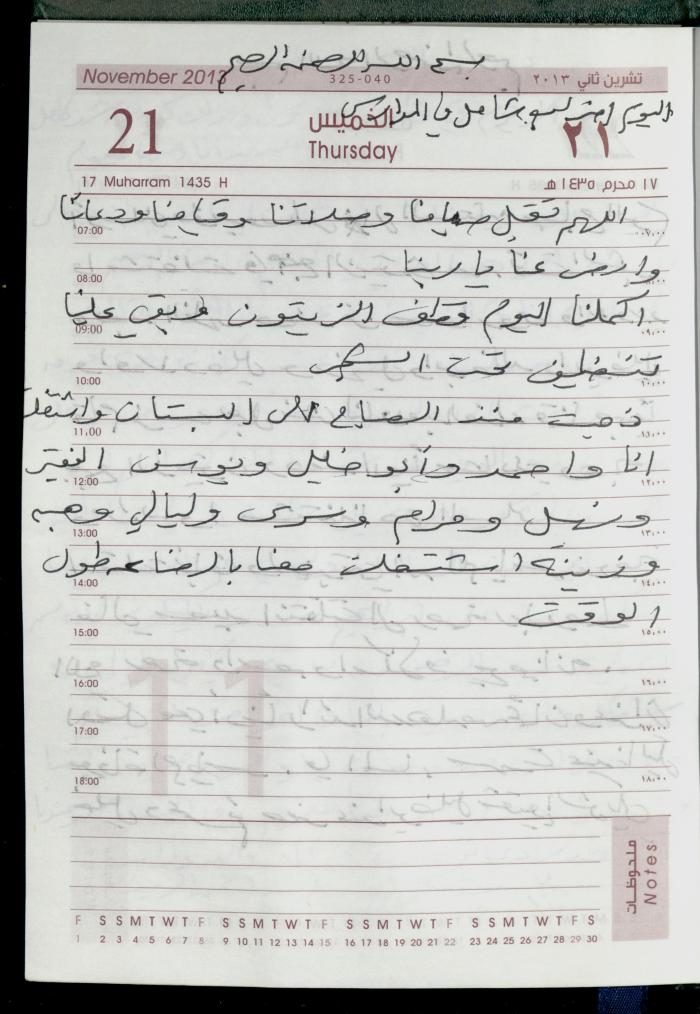 بسم الله الرحمن الرحيم
November 2013 325-040 تشرين ثاني ٢٠١٣
اليوم اضراب شامل في المدارس
21 الخميس ٢١
Thursday
17 Muharram 1435 H ١٧ محرم ١٤٣٥ هـ
اللهم تقبل صيامنا وصلاتنا وقيامنا ودعائنا
07:00 ٠٧,٠٠
وارض عنا يا ربنا
08:00
اكملنا اليوم قطف الزيتون وبقي علينا
09:00 ٠٩,٠٠
تنظيف تحت الشجر
10:00 ١٠,٠٠
ذهبت منذ الصباح الى البستان واشتغلت
11:00 ١١,٠٠
انا واحمد وأبو خليل ويوسف الفقير
12:00 ١٢,٠٠
ومرام ويسرى وليالي وهبه
13:00 ١٣,٠٠
وزينة اشتغلت معنا بالرضاعه طول
14:00 ١٤,٠٠
الوقت
15:00 ١٥,٠٠
16:00 ١٦,٠٠
17:00 ١٧,٠٠
18:00 ١٨,٠٠
ملحوظات
Notes
F S S M T W T F S S M T W T F S S M T W T F S S M T W T F S
1 2 3 4 5 6 7 8 9 10 11 12 13 14 15 16 17 18 19 20 21 22 23 24 25 26 27 28 29 30